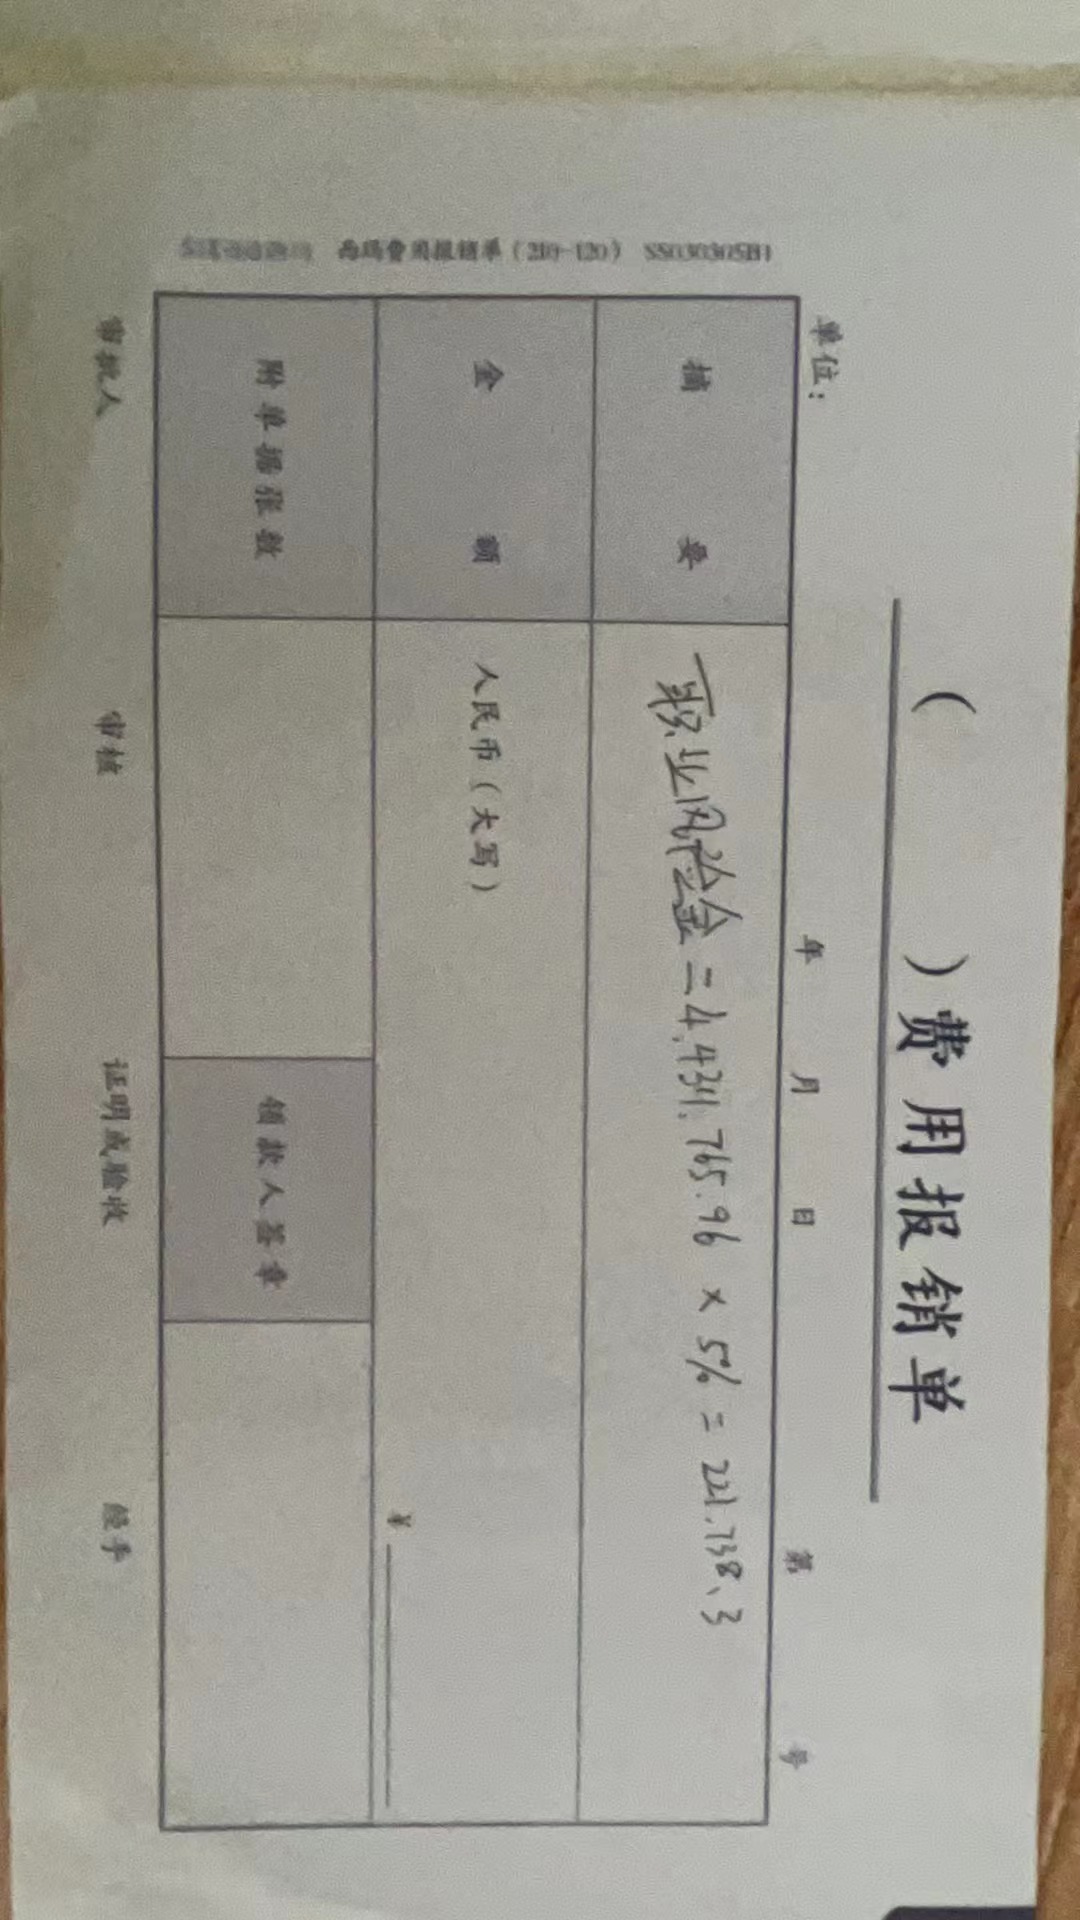 ( )费用报销单
单位: 年 月 日 第 号
摘要 职业风险金 = 4,434,765.96 × 5% = 221,738、3
金额 人民币(大写) ¥
附单据张数 领款人签章
审批人 审核 证明或验收 经手
西玛费用报销单(210-120) SS030305B1